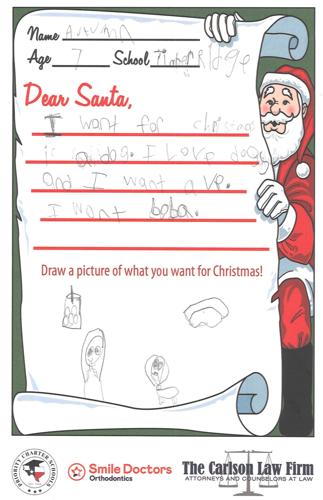 Name Autumn
Age 7 School Timber Ridge
Dear Santa,
I want for christmas
is a dog. I Love dogs
and I want a VR.
I want boba.
Draw a picture of what you want for Christmas!
PRIORITY CHARTER SCHOOLS
Smile Doctors
Orthodontics
The Carlson Law Firm
ATTORNEYS AND COUNSELORS AT LAW